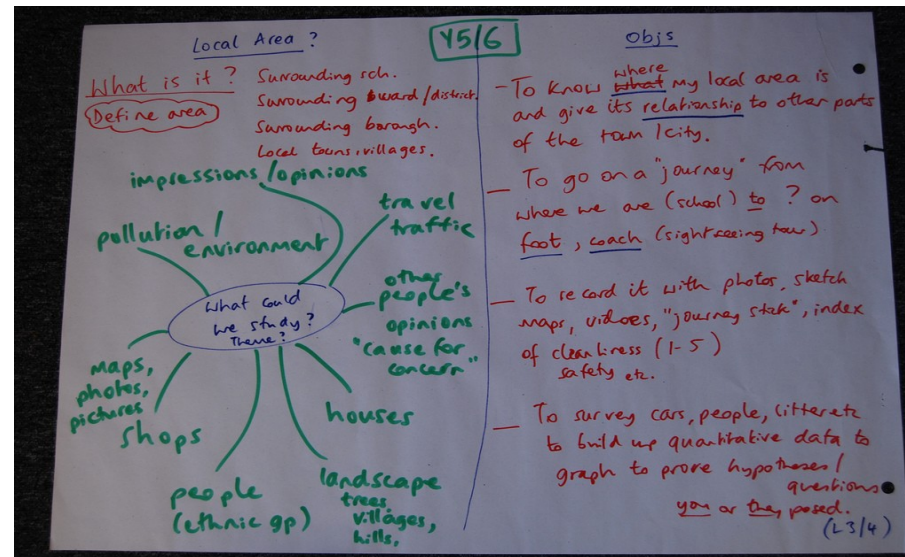 Local Area?
Y5/6
What is it?
Define area
Surrounding sch.
Surrounding ward/district.
Surrounding borough.
Local towns, villages.
impressions/opinions
pollution/
environment
travel
traffic
other
people's
opinions
"cause for
concern"
What could
we study?
Theme?
maps,
photos,
pictures
shops
people
(ethnic gp)
landscape
trees,
villages,
hills,
houses
Objs
where
- To know what my local area is
and give its relationship to other parts
of the town/city.
- To go on a "journey" from
where we are (school) to ? on
foot, coach (sightseeing tour)
- To record it with photos, sketch
maps, vidoes, "journey stick", index
of cleanliness (1-5)
safety etc.
- To survey cars, people, litter etc
to build up quantitative data to
graph to prove hypotheses/
questions
you or they posed.
(L3/4)